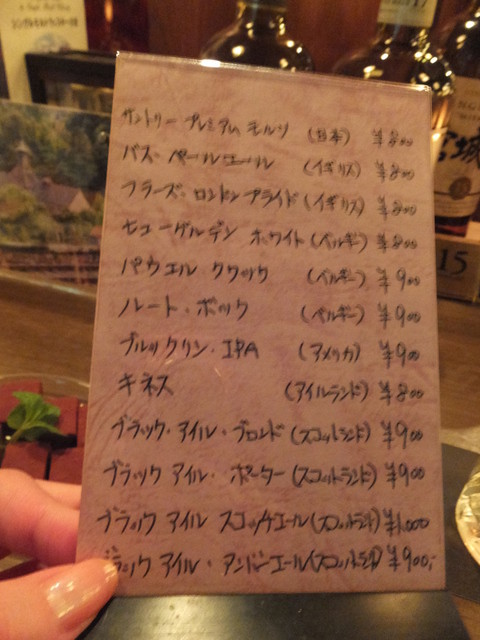 サントリー プレミアム モルツ (日本) ¥800
バス・ペールエール (イギリス) ¥800
フラーズ・ロンドンプライド (イギリス) ¥800
ヒューガルデン ホワイト (ベルギー) ¥800
パウエル・クワック (ベルギー) ¥900
ルート・ボック (ベルギー) ¥900
ブルックリン・IPA (アメリカ) ¥900
ギネス (アイルランド) ¥800
ブラック・アイル・ブロンド (スコットランド) ¥900
ブラック アイル・ポーター (スコットランド) ¥900
ブラック アイル スコッチエール (スコットランド) ¥1,000
ブラック アイル・アンバーエール (スコットランド) ¥900,-
15
宮城
17